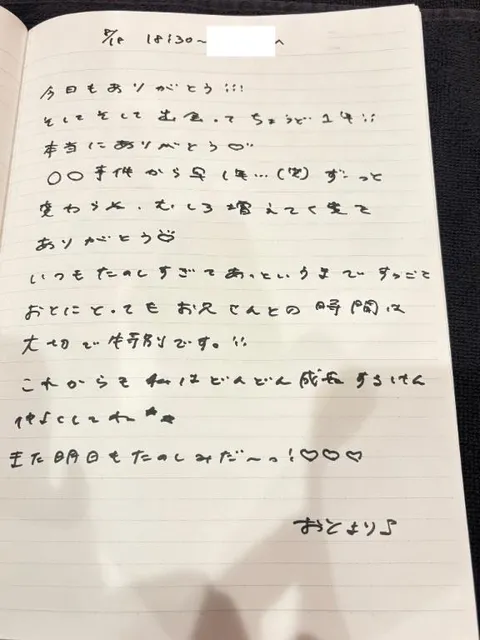 18:30〜 へ
今日もありがとう!!!
そしてそして出会ってちょうど1年!!
本当にありがとう♡
〇〇事件から早1年…(笑) ずーっと
変わらず、むしろ増えてく愛で
ありがとう♡
いつもたのしすぎてあっというまですっごく
おとにとってもお兄さんとの時間は
大切で特別です。!!
これからも私はどんどん成長するけん
仲よくしてね★★
また明日もたのしみだ〜っ!♡♡♡
おとより♪